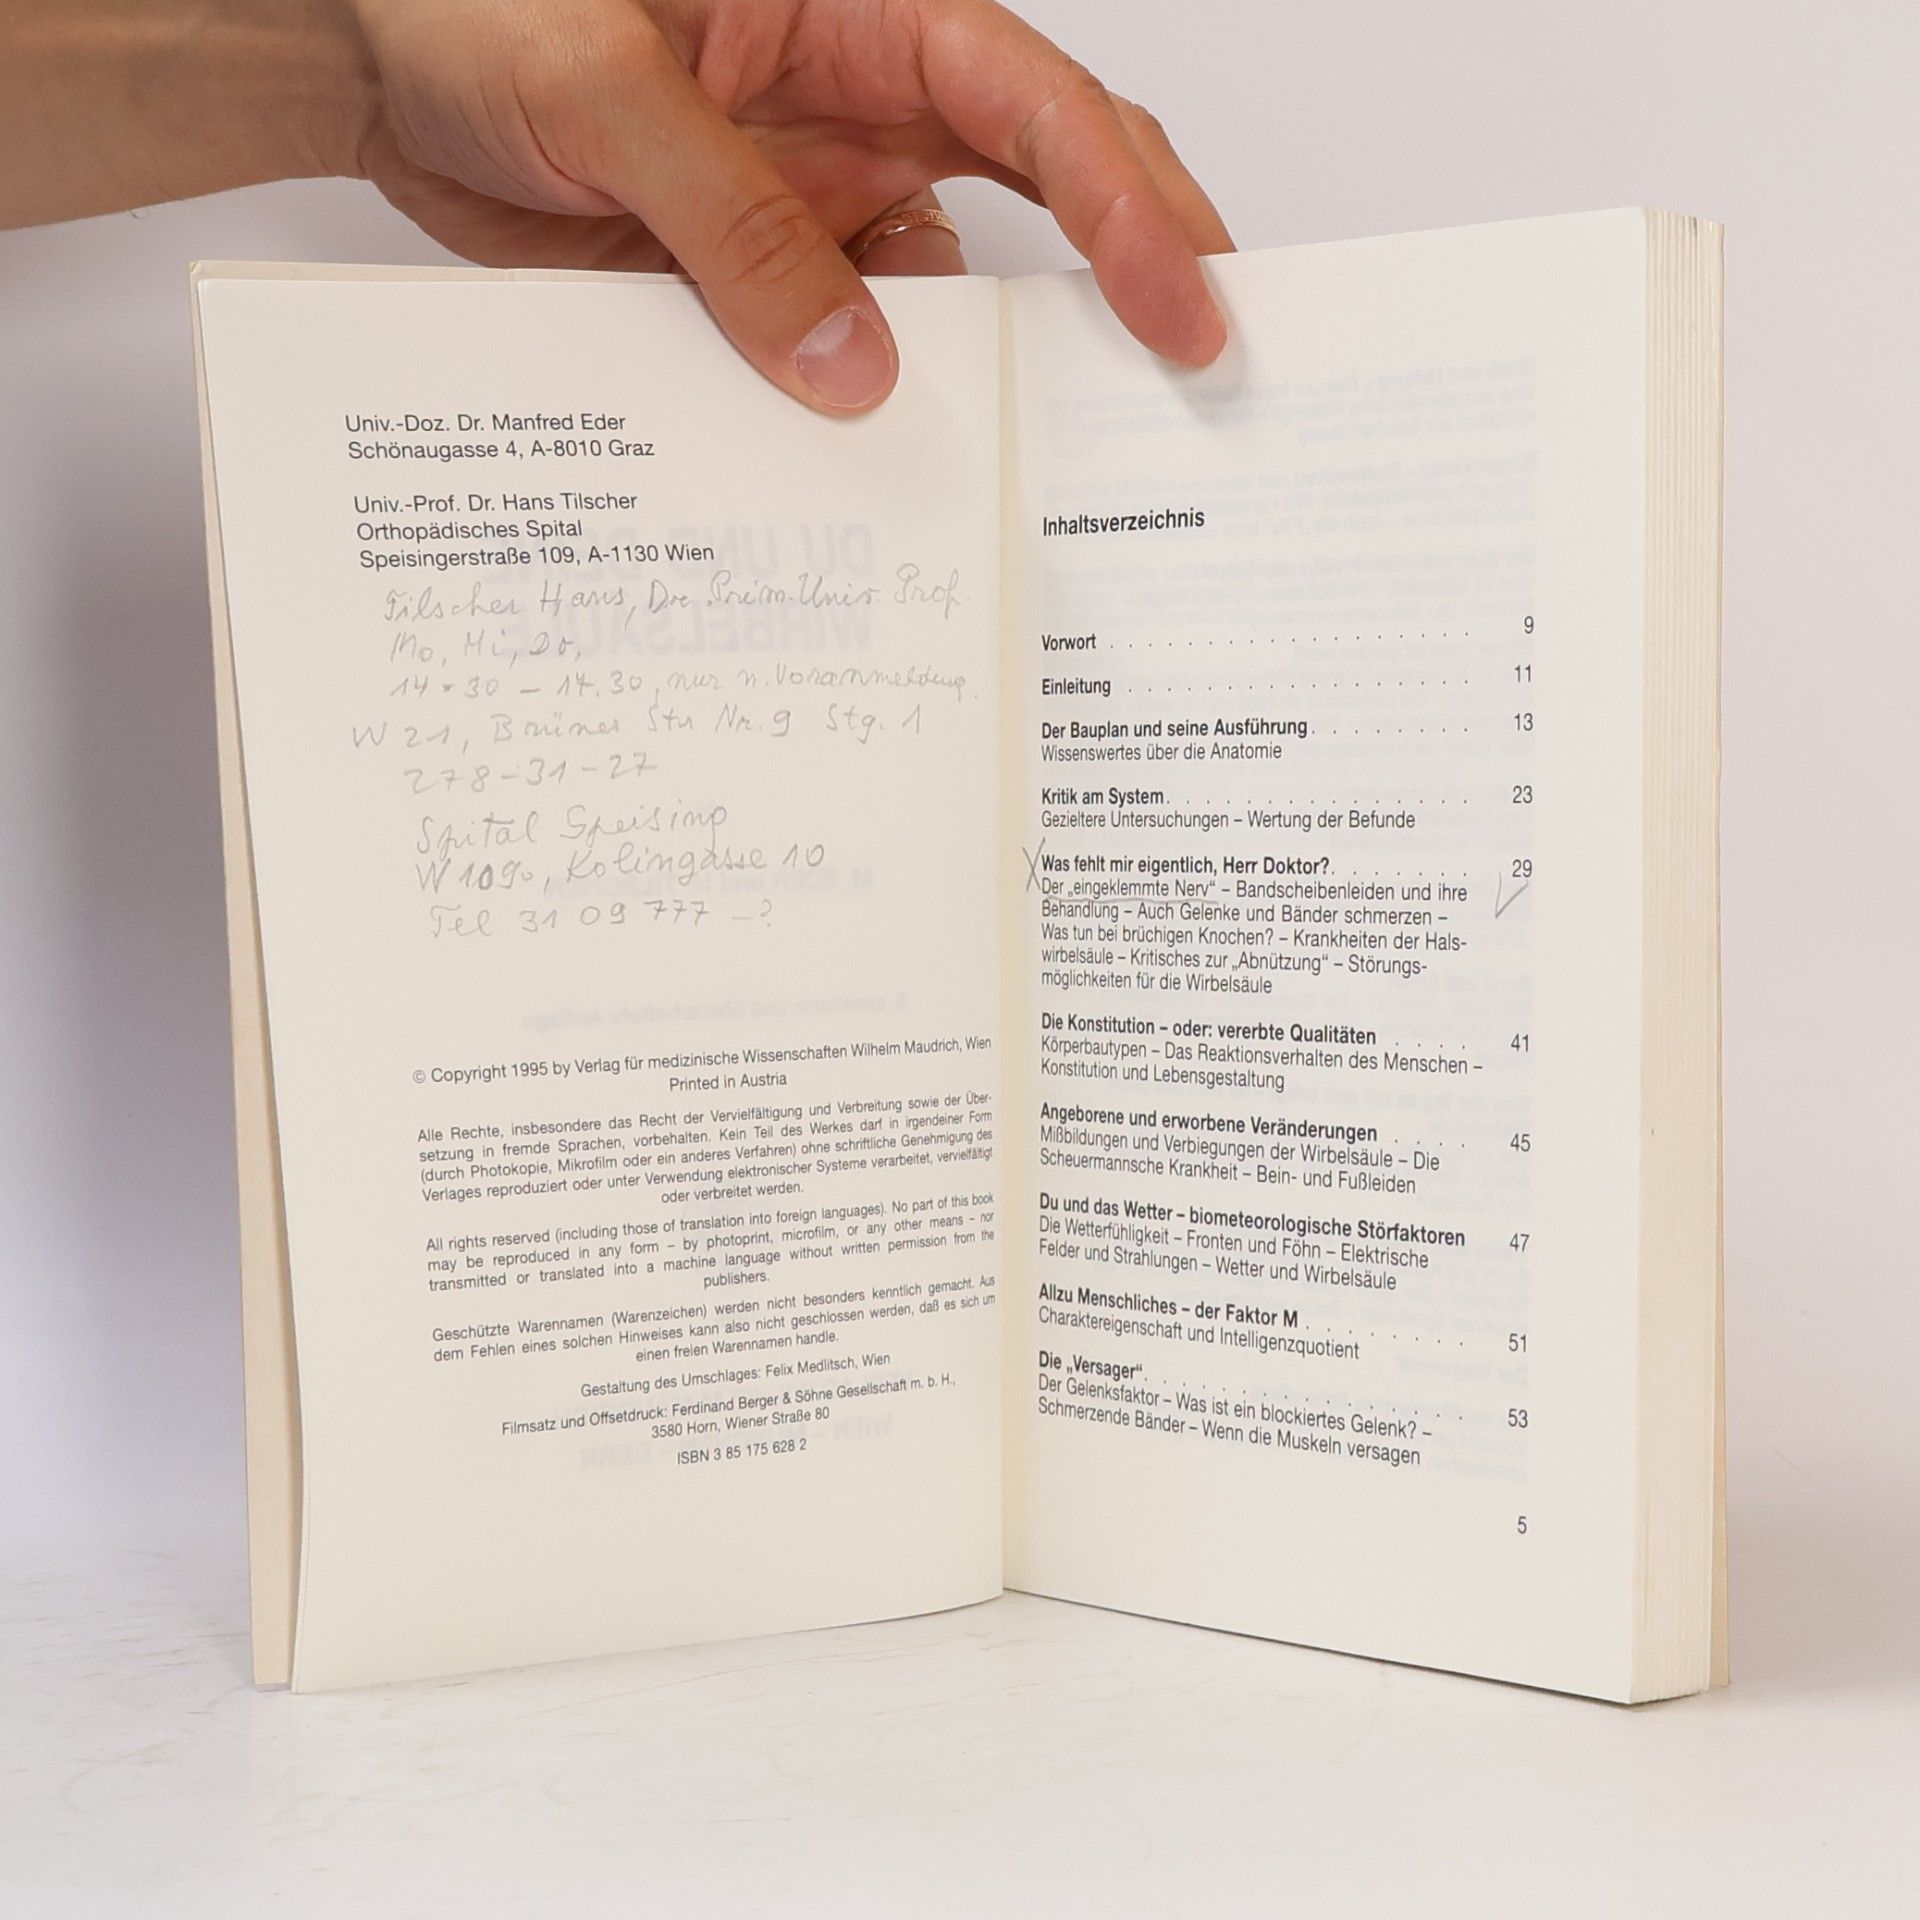 Univ.-Doz. Dr. Manfred Eder
Schönaugasse 4, A-8010 Graz
Univ.-Prof. Dr. Hans Tilscher
Orthopädisches Spital
Speisingerstraße 109, A-1130 Wien
Tilscher Hans, Dr. Prim. Univ. Prof.
Mo, Mi, Do,
14.30 – 17.30, nur n. Voranmeldung.
W 21, Brüner Str Nr. 9 Stg. 1
278-31-27
Spital Speising
W 1090, Kolingasse 10
Tel 31 09 777 – ?
© Copyright 1995 by Verlag für medizinische Wissenschaften Wilhelm Maudrich, Wien
Printed in Austria
Alle Rechte, insbesondere das Recht der Vervielfältigung und Verbreitung sowie der Über-
setzung in fremde Sprachen, vorbehalten. Kein Teil des Werkes darf in irgendeiner Form
(durch Photokopie, Mikrofilm oder ein anderes Verfahren) ohne schriftliche Genehmigung des
Verlages reproduziert oder unter Verwendung elektronischer Systeme verarbeitet, vervielfältigt
oder verbreitet werden.
All rights reserved (including those of translation into foreign languages). No part of this book
may be reproduced in any form – by photoprint, microfilm, or any other means – nor
transmitted or translated into a machine language without written permission from the
publishers.
Geschützte Warennamen (Warenzeichen) werden nicht besonders kenntlich gemacht. Aus
dem Fehlen eines solchen Hinweises kann also nicht geschlossen werden, daß es sich um
einen freien Warennamen handle.
Gestaltung des Umschlages: Felix Medlitsch, Wien
Filmsatz und Offsetdruck: Ferdinand Berger & Söhne Gesellschaft m. b. H.,
3580 Horn, Wiener Straße 80
ISBN 3 85 175 628 2
Inhaltsverzeichnis
Vorwort . . . . . . . . . . . . . . . . . . 9
Einleitung . . . . . . . . . . . . . . . . . 11
Der Bauplan und seine Ausführung . . . . . . . . 13
Wissenswertes über die Anatomie
Kritik am System . . . . . . . . . . . . . . . 23
Gezieltere Untersuchungen – Wertung der Befunde
X Was fehlt mir eigentlich, Herr Doktor? . . . . . . . 29
Der „eingeklemmte Nerv“ – Bandscheibenleiden und ihre
Behandlung – Auch Gelenke und Bänder schmerzen –
Was tun bei brüchigen Knochen? – Krankheiten der Hals-
wirbelsäule – Kritisches zur „Abnützung“ – Störungs-
möglichkeiten für die Wirbelsäule
Die Konstitution – oder: vererbte Qualitäten . . . . 41
Körperbautypen – Das Reaktionsverhalten des Menschen –
Konstitution und Lebensgestaltung
Angeborene und erworbene Veränderungen . . . . 45
Mißbildungen und Verbiegungen der Wirbelsäule – Die
Scheuermannsche Krankheit – Bein- und Fußleiden
Du und das Wetter – biometeorologische Störfaktoren 47
Die Wetterfühligkeit – Fronten und Föhn – Elektrische
Felder und Strahlungen – Wetter und Wirbelsäule
Allzu Menschliches – der Faktor M . . . . . . . . 51
Charaktereigenschaft und Intelligenzquotient
Die „Versager“ . . . . . . . . . . . . . . . . 53
Der Gelenksfaktor – Was ist ein blockiertes Gelenk? –
Schmerzende Bänder – Wenn die Muskeln versagen
5